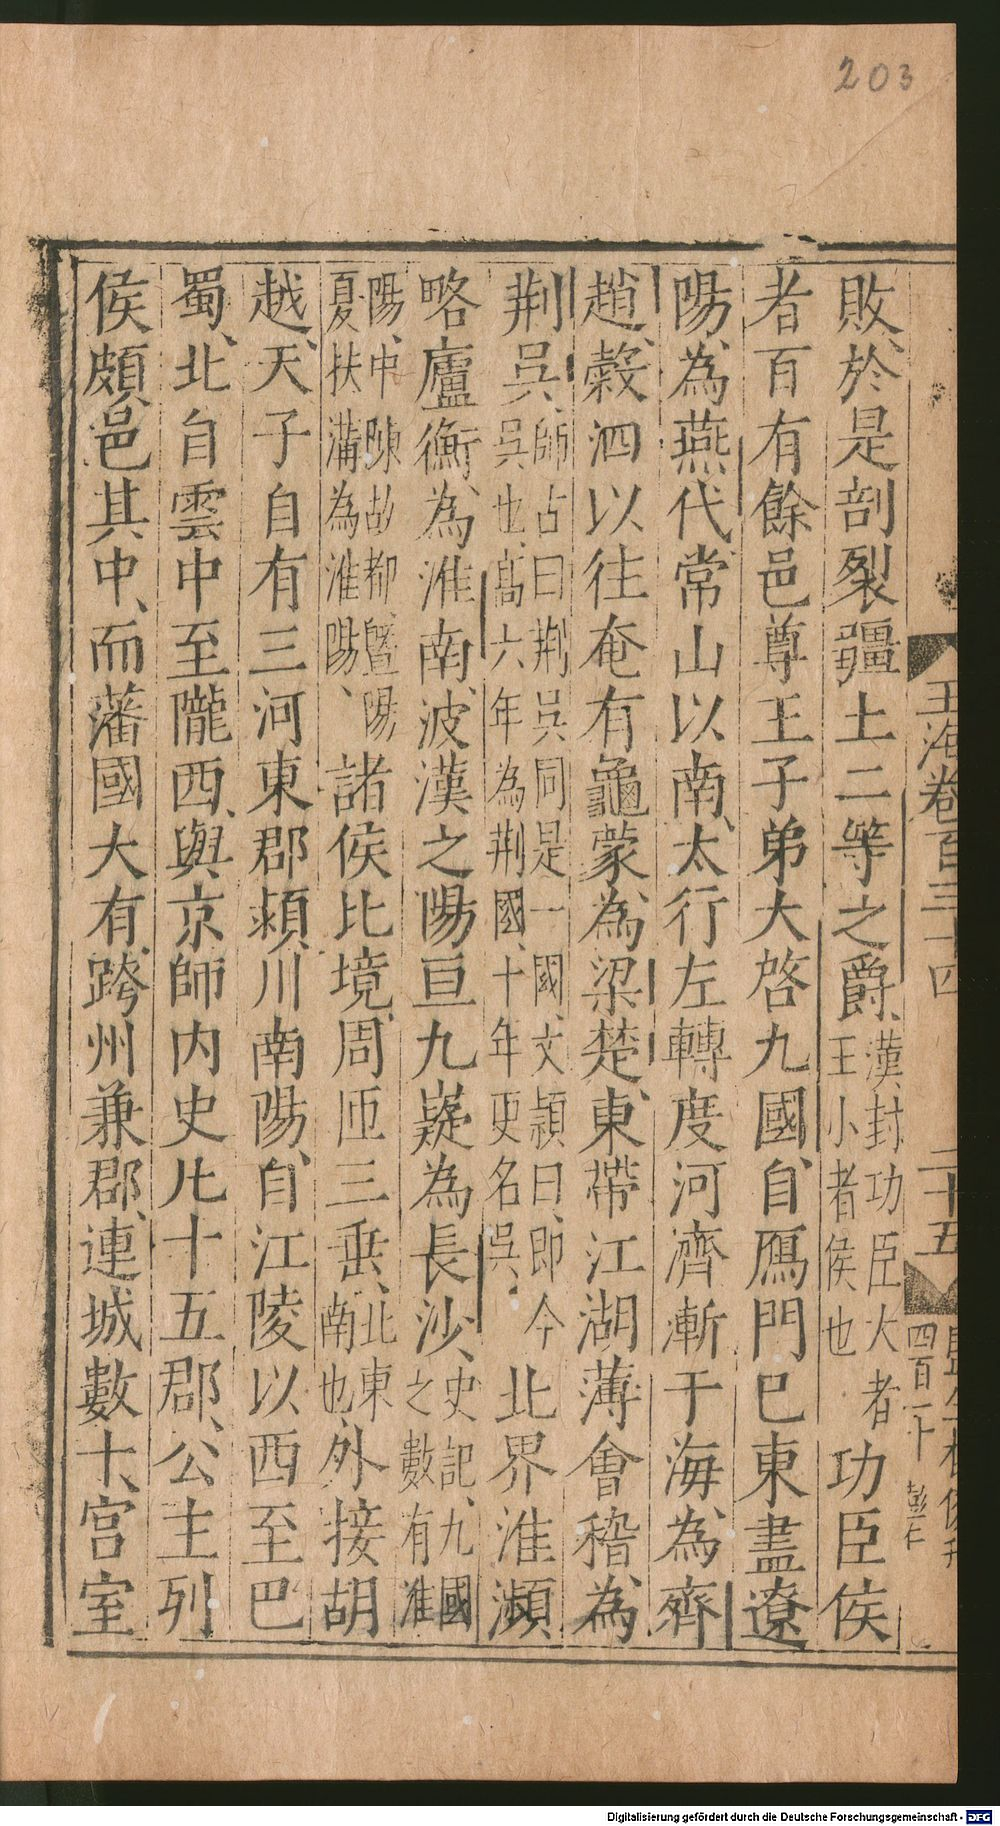 203
玉海卷百三十四
二十五
四百一十
彭仁
敗於是剖裂疆土二等之爵漢封功臣大者王小者侯也功臣侯
者百有餘邑尊王子弟大啓九國自鴈門巳東盡遼
陽為燕代常山以南太行左轉度河濟漸于海為齊
趙榖泗以往奄有龜蒙為梁楚東帶江湖薄會稽為
荆吳師古曰荆吳同是一國文潁曰即今吳也高六年為荆國十年更名吳北界淮瀕
略廬衡為淮南波漢之陽亘九嶷為長沙史記九國之數有淮
陽中陳故都暨陽夏扶溝為淮陽諸侯比境周匝三垂北東南也外接胡
越天子自有三河東郡潁川南陽自江陵以西至巴
蜀北自雲中至隴西與京師内史凡十五郡公主列
侯頗邑其中而藩國大有跨州兼郡連城數十宫室
Digitalisierung gefördert durch die Deutsche Forschungsgemeinschaft - DFG